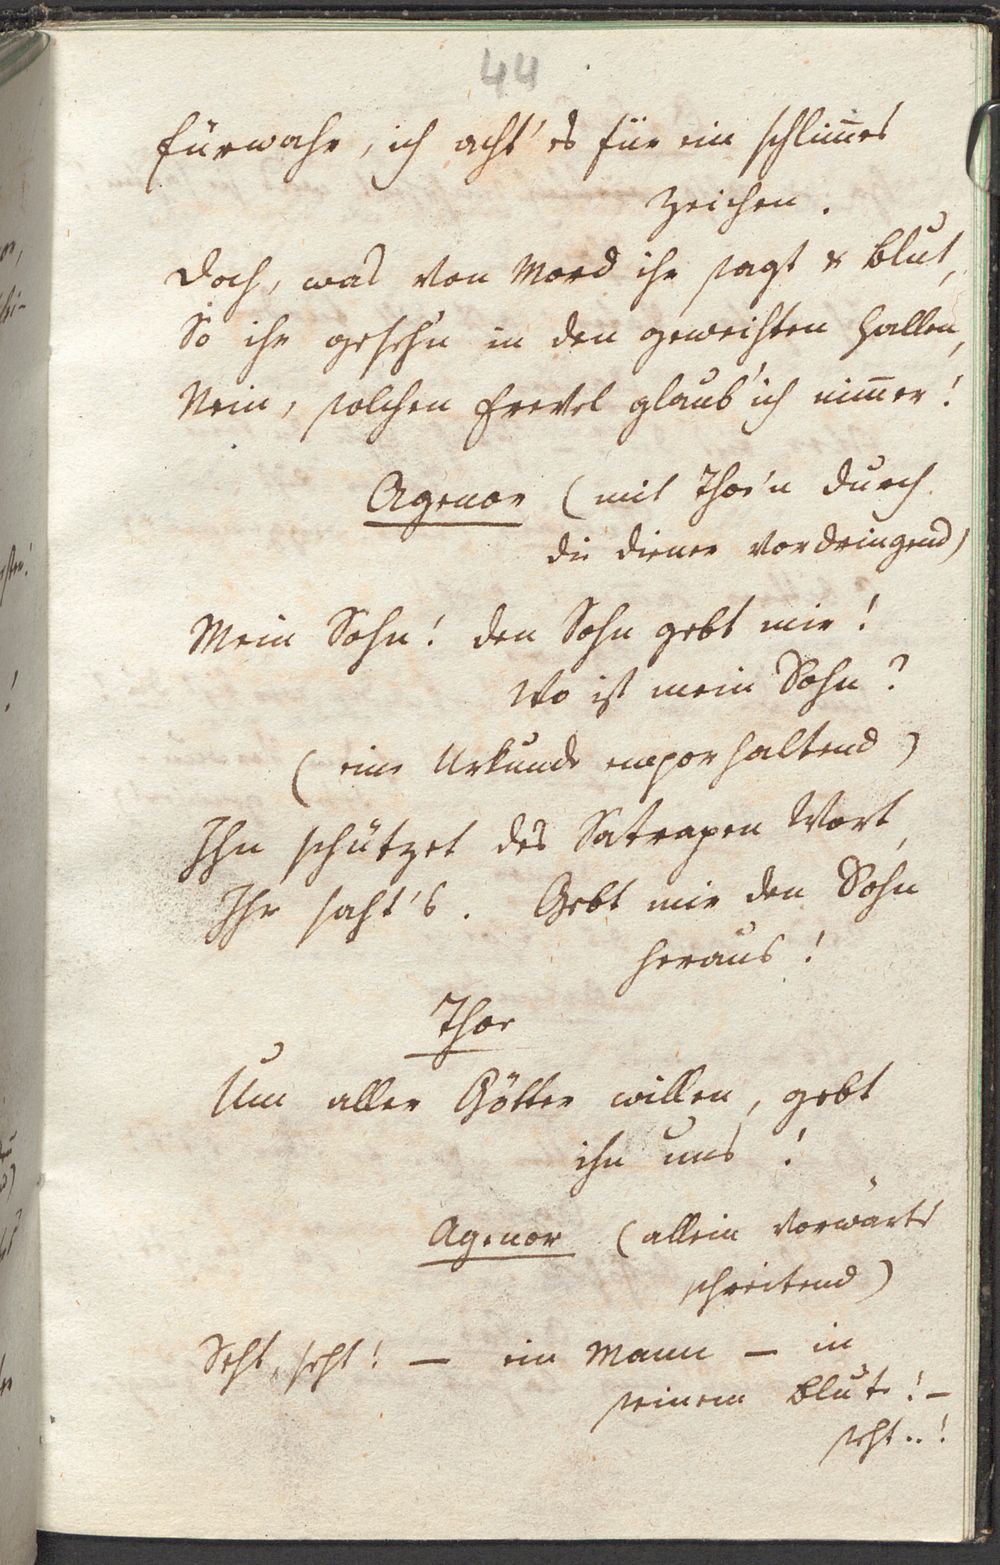 44
Fürwahr, ich acht' es für ein schlim̅es
Zeichen.
Doch, was von Mord ihr sagt & Blut,
So ihr geseh'n in den geweihten Hallen,
Nein, solchen Frevel glaub' ich nim̅er!
Agenor (mit Thor'n durch
die Diener vordringend)
Mein Sohn! den Sohn gebt mir!
Wo ist mein Sohn?
(eine Urkunde emporhaltend)
Ihn schützet des Satrapen Wort,
Ihr saht's. Gebt mir den Sohn
heraus!
Thor
Um aller Götter willen, gebt
ihn uns!
Agenor (allein vorwärts
schreitend)
Seht, seht! — ein Mann — in
seinem Blute! —
seht..!